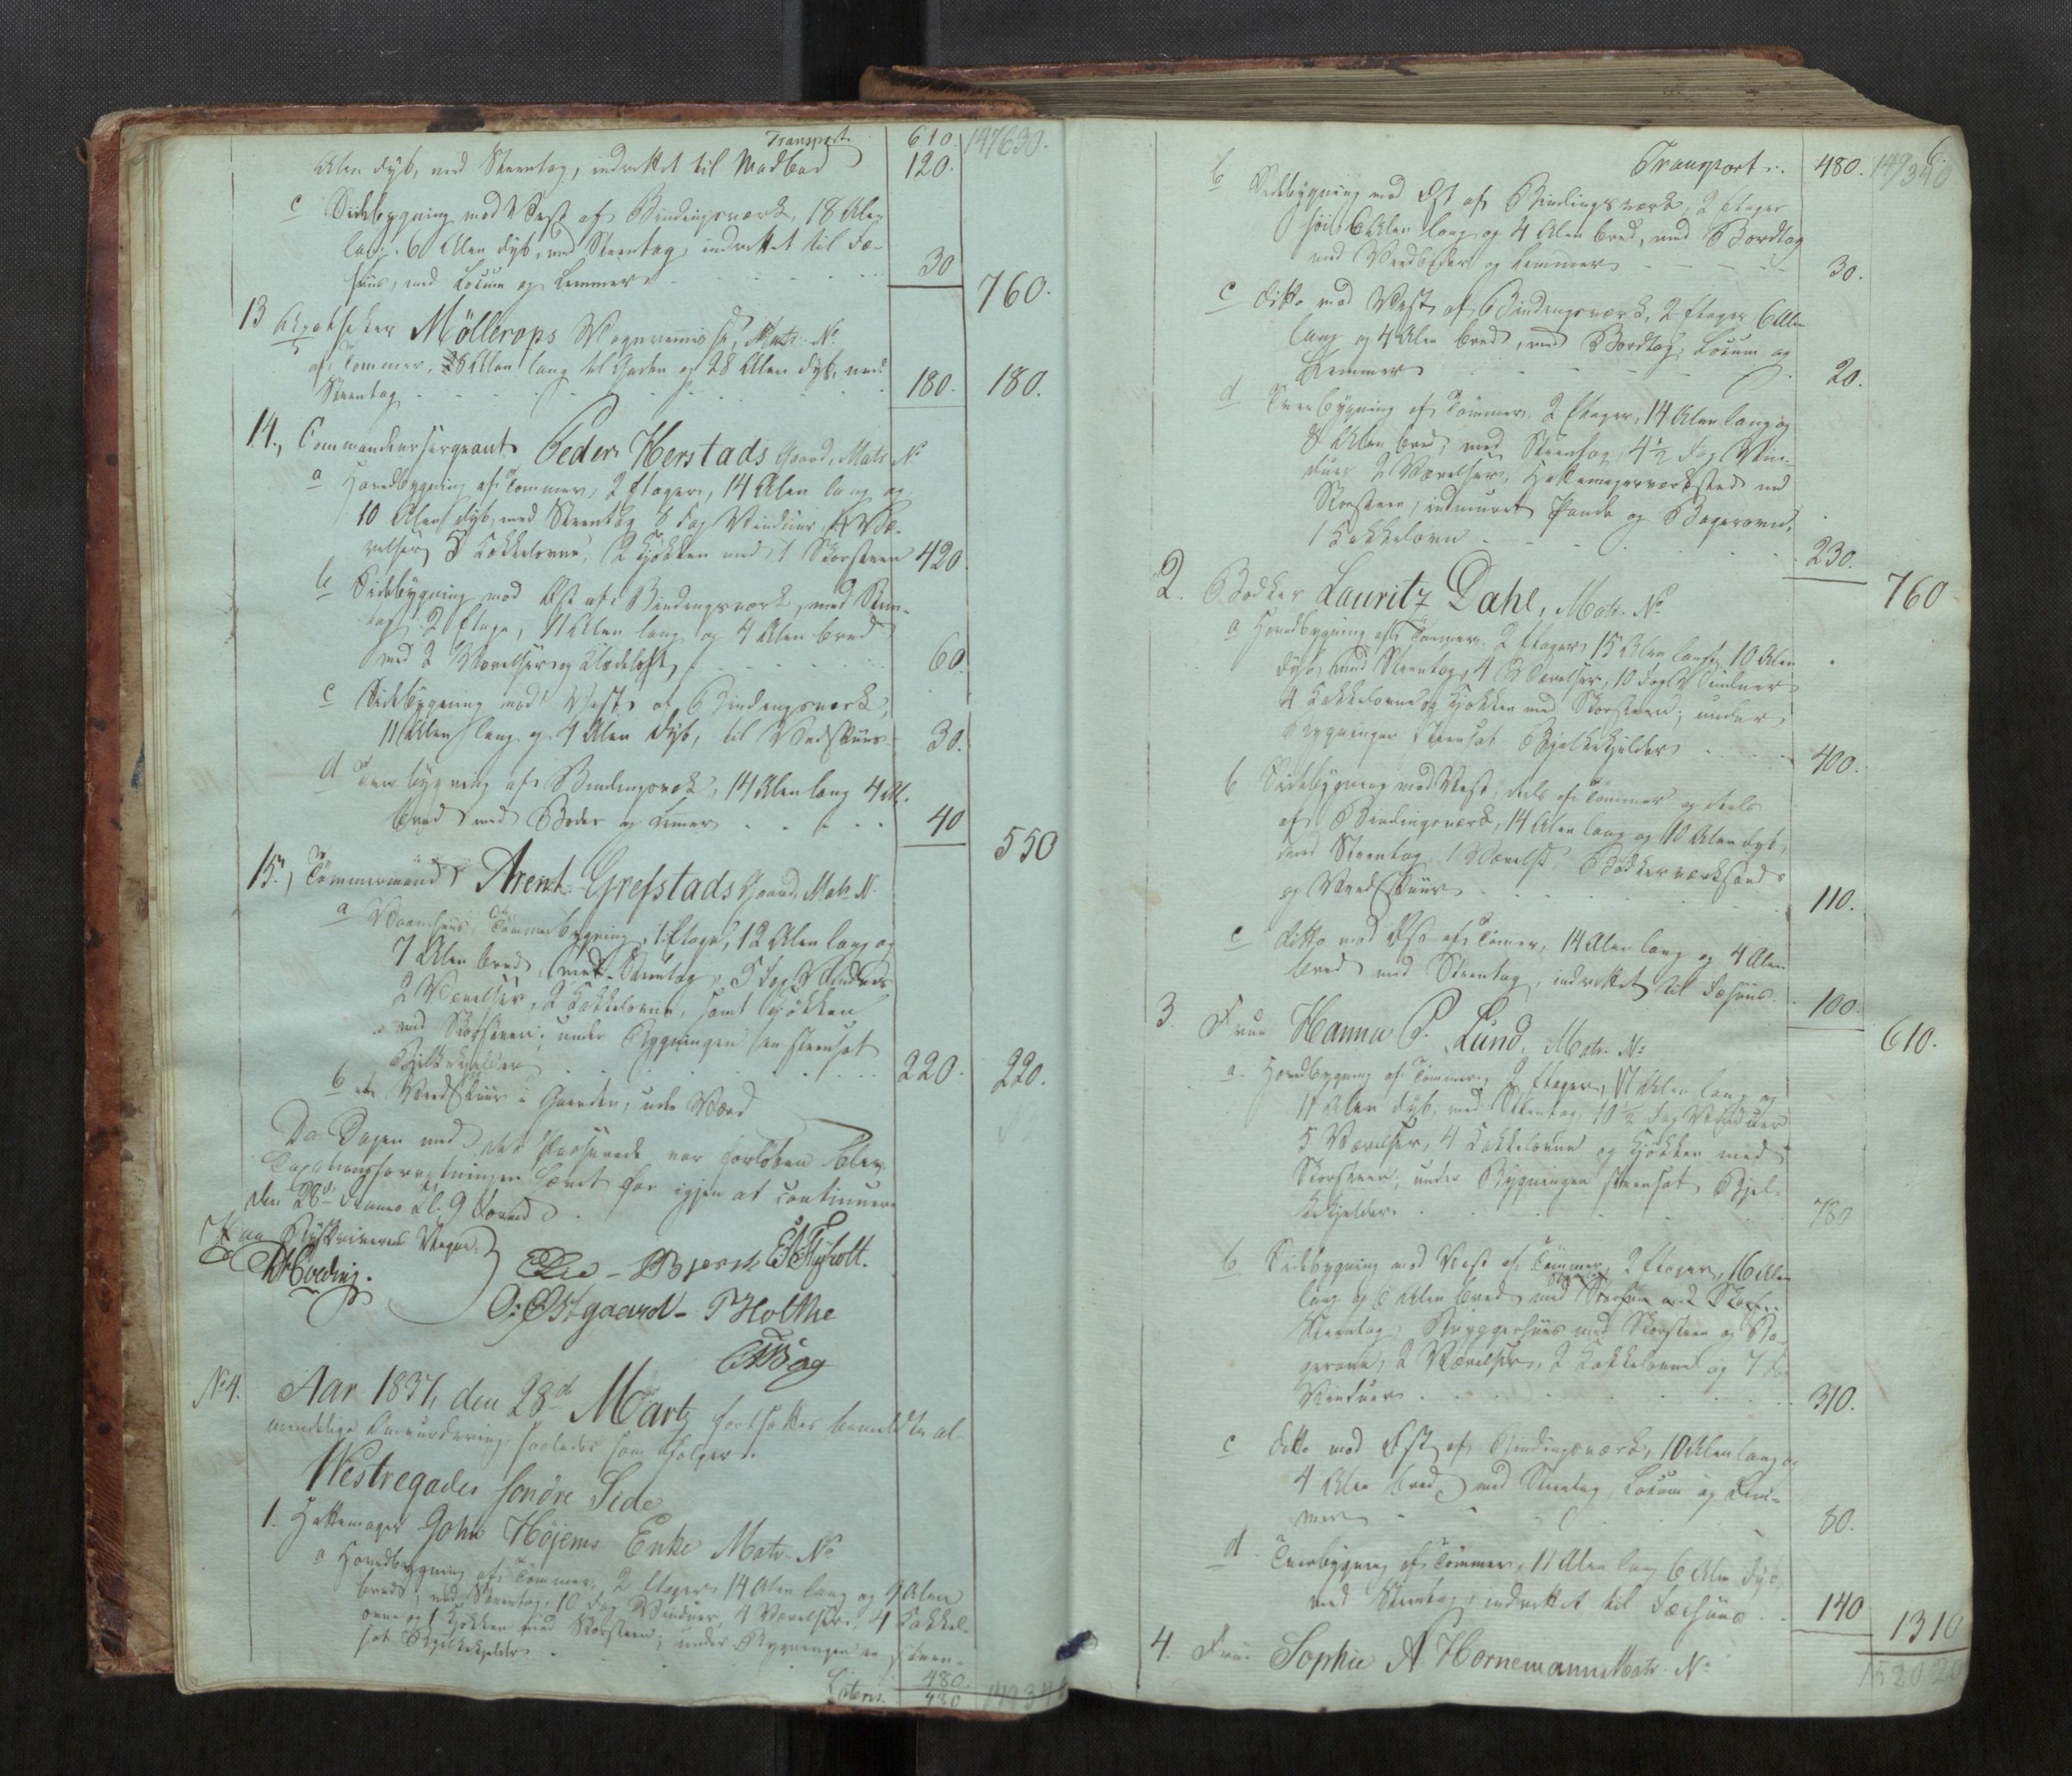 Transport 610. 147630.
Alen dyb, med Steentag, indrettet til Madbod 120.
c Sidebygning mod Vest af Bindingsværk, 18 Alen
lang, 6 Alen dyb, med Steentag, indrettet til Fæ-
huus, med Locum og Lemmer 30 760.
13 Apotheker Möllerops Vognremisse, Matr. No
af Tømmer, Alen lang til Gaden og 28 Alen dyb, med
Steentag 180. 180.
14., Commandeersergeant Peder Herstads Gaard, Matr No
a Hovedbygning af Tømmer, 2 Etager, 14 Alen lang og
10 Alen dyb, med Steentag 8 Fag Vinduer, 4 Væ-
relser, 3 Kakkelovne, 2 Kjøkken med 1 Skorsteen 420
b Sidebygning mod Øst af Bindingsværk, med Steen-
tag 2 Etage, 11 Alen lang og 4 Alen bred
med 2 Værelser og Klædeloft 60
c Sidebygning mod Vest af Bindingsværk,
11 Alen lang og 4 Alen dyb, til Vedskuur 30.
d Tverbygning af Bindingsværk, 14 Alen lang 4 Al.
bred med Boder og Lemmer 40 550
15., Tømmermand Arent Grefstads Gaard, Matr N.
a Vaanhuus, Tømmerbygning, 1 Etage, 12 Alen lang og
7 Alen bred, med Steentag, 5 Fag Vinduer
2 Værelser, 2 Kakkelovne, samt Kjøkken
med Skorsteen; under Bygningen en steensat
Bjelkekjelder 220. 220.
b et Vedskuur i Gaarden, uden Værd
Da Dagen med det Passerede var forløben blev
Taxationsforretningen hævet for igjen at continuere
den 28de dennes Kl. 9 Formd.
Paa Byskriverens Vegne.
Bjerck E. Fliflyholt.
O: Østgaard - P Holthe
Bog
No 4. Aar 1837, den 28d Martz fortsattes bemeldte al-
mindelige Omvurdering saaledes som følger:
Westregades søndre Side
1. Hattemager John Höjems Enke Matr. No
a Hovedbygning af Tømmer, 2 Etager 14 Alen lang og 9 Alen
bred, med Steentag, 10 Fag Vinduer, 4 Værelser, 4 Kakkel-
ovne og 1 Kjøkken med Skorsteen; under Bygningen en steen-
sat Bjelkekjelder 480.
Lateris. 480
6.
Transport: 480. 149340
b Sidebygning mod Øst af Bindingsværk, 2 Etager
høi, 6 Alen lang og 4 Alen bred, med Bordtag
med Vedboder og Lemmer 30.
c ditto mod Vest af Bindingsværk, 2 Etager 6 Alen
lang og 4 Alen bred, med Bordtag, Locum og
Lemmer 20.
d Tverbygning af Tømmer, 2 Etager, 14 Alen lang og
8 Alen bred, med Steentag 4 1/2 Fag Vin-
duer 2 Værelser, Hattemagerværksted med
Skorsteen, indmuret Pande og Bagerovn,
1 Kakkelovn 230. 760
2. Bødker Lauritz Dahl, Matr. No
a Hovedbygning af Tømmer 2 Etager 15 Alen lang, 10 Alen
dyb, med Steentag, 4 Værelser, 10 Fag Vinduer
4 Kakkelovne og Kjøkken med Skorsteen; under
Bygningen steensat Bjelkekjelder 400.
b Sidebygning mod Vest, deels af Tømmer og deels
af Bindingsværk, 14 Alen lang og 10 Alen dyb,
med Steentag, 1 Værelse, Bødkerværksted
og Vedskuur 110.
c ditto mod Øst af Tømmer, 14 Alen lang og 4 Alen
bred med Steentag, indrettet til Fæhuus 100. 610.
3. Frue Hanna P. Lund, Matr. No
a. Hovedbygning af Tømmer, 2 Etager, Alen lang og
11 Alen dyb, med Steentag, 10 1/2 Fag Vinduer
5 Værelser, 4 Kakkelovne og Kjøkken med
Skorsteen; under Bygningen steensat Bjel-
kekjelder 780
b Sidebygning mod Vest af Tømmer, 2 Etager, 16 Alen
lang og 6 Alen bred med
Steentag, Bryggerhuus med Skorsteen og Ba-
gerovn, 2 Værelser, 2 Kakkelovne og 7 Fag
Vinduer 310.
c ditto mod Øst af Bindingsværk, 10 Alen lang og
4 Alen bred med Steentag, Locum og Lem-
mer 80.
d Tverbygning af Tømmer, 11 Alen lang 6 Alen dyb,
med Steentag, indrettet til Fæehuus 140 1310
4. Frue Sophie A. Hornemann Matr. No 152020